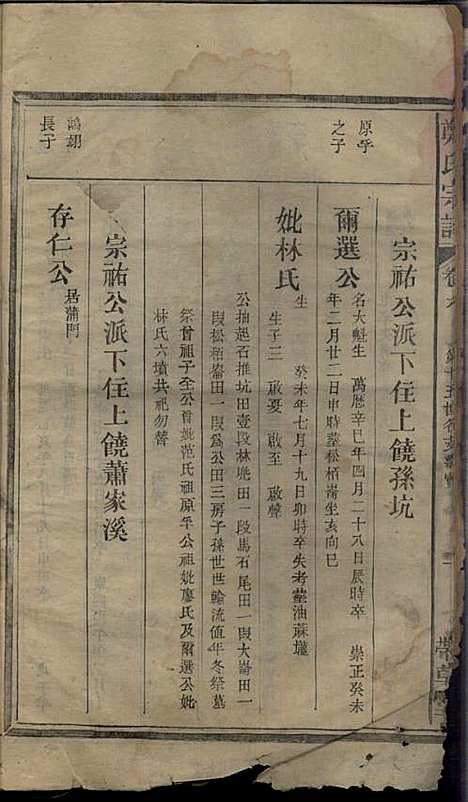 鄭氏宗譜
宗祐公派下住上饒孫坑
原孚
之子
爾選公
名大魁生 萬曆辛巳年四月二十八日辰時卒 崇正癸未
年二月廿二日申時塟松栢崙坐亥向巳
妣林氏
生 癸未年七月十九日卯時卒失考塟油蔴壠
生子三 啟夏 啟至 啟聲
公抽起石推坑田壹段林墘田一段馬石尾田一段大崙田一
段松栢崙田一段爲公田三房子孫世世輪流值年冬祭墓
祭曾祖子全公曾妣范氏祖原平公祖妣廖氏及爾選公妣
林氏六墳共祀勿替
宗祐公派下住上饒蕭家溪
鵠翊
長子
存仁公
居蒲門